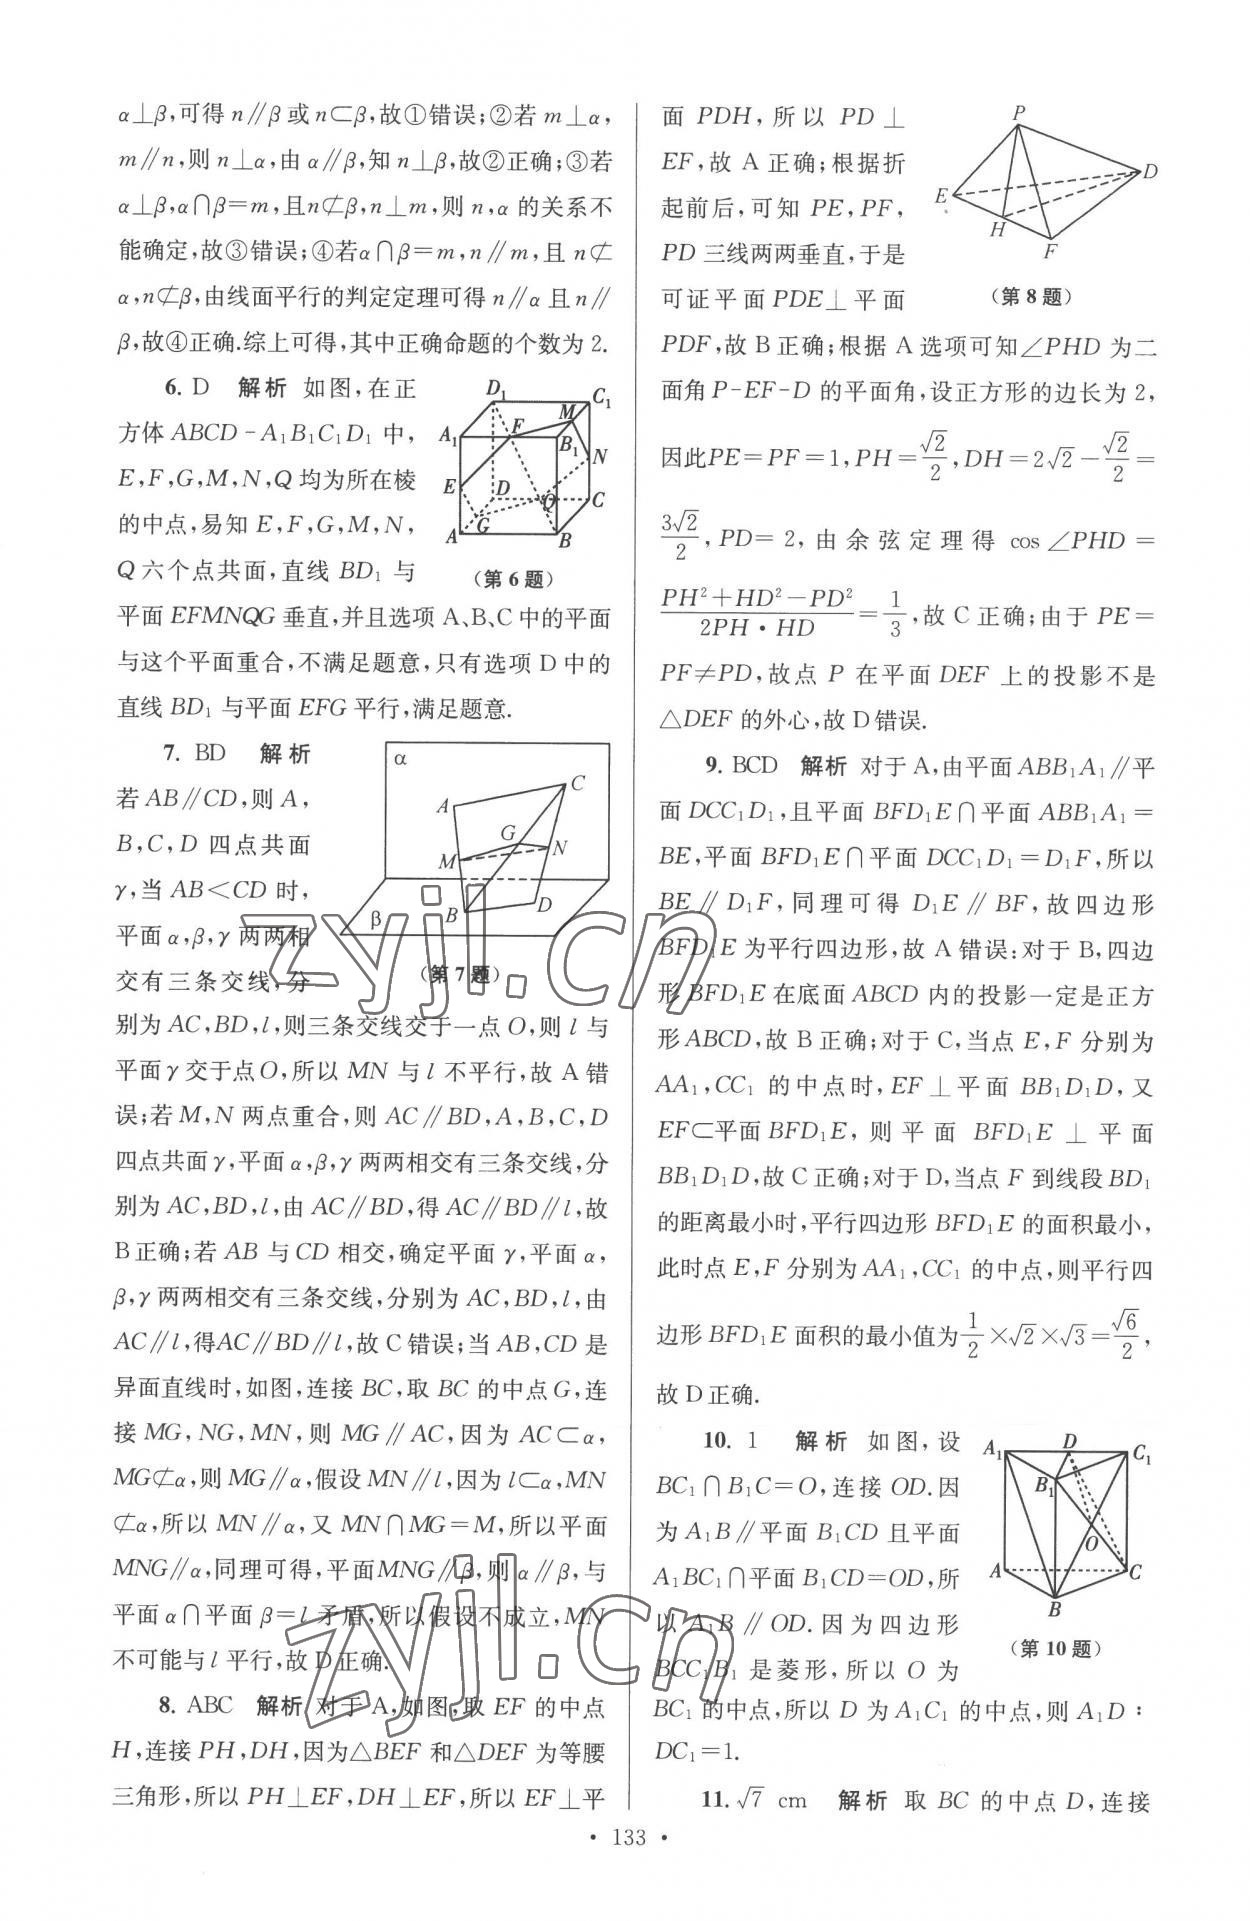 α⊥β,可得 n∥β 或 n⊂β,故①错误;②若 m⊥α,
m∥n,则 n⊥α,由 α∥β,知 n⊥β,故②正确;③若
α⊥β,α∩β=m,且n⊄β,n⊥m,则 n,α 的关系不
能确定,故③错误;④若α∩β=m,n∥m,且 n⊄
α,n⊄β,由线面平行的判定定理可得 n∥α 且 n∥
β,故④正确.综上可得,其中正确命题的个数为 2.
6. D 解析 如图,在正
方体 ABCD-A₁B₁C₁D₁ 中,
E,F,G,M,N,Q 均为所在棱
的中点,易知 E,F,G,M,N,
Q 六个点共面,直线 BD₁ 与
D₁
C₁
M
F
A₁
B₁
N
E
D
Q
C
G
A
B
(第 6 题)
平面 EFMNQG 垂直,并且选项 A、B、C 中的平面
与这个平面重合,不满足题意,只有选项 D 中的
直线 BD₁ 与平面 EFG 平行,满足题意.
7. BD 解析
若 AB∥CD,则 A,
B,C,D 四点共面
γ,当 AB<CD 时,
平面 α,β,γ 两两相
交有三条交线,分
α
C
A
G
N
M
B
D
β
(第 7 题)
别为 AC,BD,l,则三条交线交于一点 O,则 l 与
平面 γ 交于点 O,所以 MN 与 l 不平行,故 A 错
误;若 M,N 两点重合,则 AC∥BD,A,B,C,D
四点共面 γ,平面 α,β,γ 两两相交有三条交线,分
别为 AC,BD,l,由 AC∥BD,得 AC∥BD∥l,故
B 正确;若 AB 与 CD 相交,确定平面 γ,平面 α,
β,γ 两两相交有三条交线,分别为 AC,BD,l,由
AC∥l,得AC∥BD∥l,故 C 错误;当 AB,CD 是
异面直线时,如图,连接 BC,取 BC 的中点 G,连
接 MG,NG,MN,则 MG∥AC,因为 AC⊂α,
MG⊄α,则 MG∥α,假设 MN∥l,因为 l⊂α,MN
⊄α,所以 MN∥α,又 MN∩MG=M,所以平面
MNG∥α,同理可得,平面MNG∥β,则 α∥β,与
平面 α∩平面 β=l 矛盾,所以假设不成立,MN
不可能与 l 平行,故 D 正确.
8. ABC 解析 对于 A,如图,取 EF 的中点
H,连接 PH,DH,因为△BEF 和△DEF 为等腰
三角形,所以 PH⊥EF,DH⊥EF,所以 EF⊥平
面 PDH,所以 PD⊥
EF,故 A 正确;根据折
起前后,可知 PE,PF,
PD 三线两两垂直,于是
可证平面 PDE⊥平面
P
D
E
H
F
(第 8 题)
PDF,故 B 正确;根据 A 选项可知∠PHD 为二
面角 P-EF-D 的平面角,设正方形的边长为 2,
因此PE=PF=1,PH=√2/2,DH=2√2-√2/2=
3√2/2,PD=2,由余弦定理得 cos∠PHD=
(PH²+HD²-PD²)/(2PH·HD)=1/3,故 C 正确;由于 PE=
PF≠PD,故点 P 在平面 DEF 上的投影不是
△DEF 的外心,故 D 错误.
9. BCD 解析 对于 A,由平面 ABB₁A₁∥平
面 DCC₁D₁,且平面 BFD₁E∩平面 ABB₁A₁=
BE,平面 BFD₁E∩平面 DCC₁D₁=D₁F,所以
BE∥D₁F,同理可得 D₁E∥BF,故四边形
BFD₁E 为平行四边形,故 A 错误;对于 B,四边
形 BFD₁E 在底面 ABCD 内的投影一定是正方
形 ABCD,故 B 正确;对于 C,当点 E,F 分别为
AA₁,CC₁ 的中点时,EF⊥平面 BB₁D₁D,又
EF⊂平面 BFD₁E,则平面 BFD₁E⊥平面
BB₁D₁D,故 C 正确;对于 D,当点 F 到线段 BD₁
的距离最小时,平行四边形 BFD₁E 的面积最小,
此时点 E,F 分别为 AA₁,CC₁ 的中点,则平行四
边形 BFD₁E 面积的最小值为1/2×√2×√3=√6/2,
故 D 正确.
10. 1 解析 如图,设
BC₁∩B₁C=O,连接 OD.因
为 A₁B∥平面 B₁CD 且平面
A₁BC₁∩平面 B₁CD=OD,所
以 A₁B∥OD.因为四边形
BCC₁B₁ 是菱形,所以 O 为
A₁
D
C₁
B₁
O
A
C
B
(第 10 题)
BC₁ 的中点,所以 D 为 A₁C₁ 的中点,则 A₁D∶
DC₁=1.
11. √7 cm 解析 取 BC 的中点 D,连接
· 133 ·
zyjl.cn
zyjl.cn